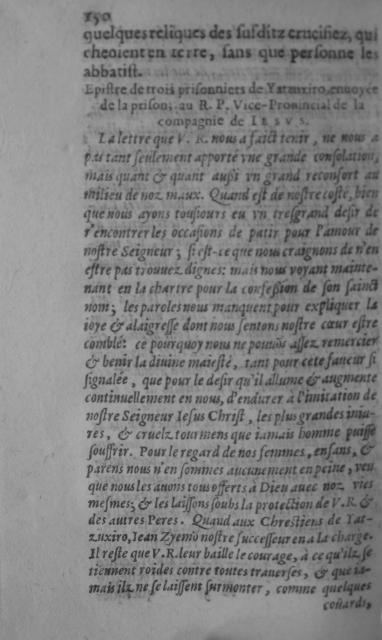 150
quelques reliques des susditz crucifiez, qui
cheoient en terre, sans que personne les
abbatist.
Epistre de trois prisonniers de Yatzuxiro, enuoyee
de la prison, au R. P. Vice-Prouincial de la
compagnie de IESVS.
La lettre que V. R. nous a faict tenir, ne nous a
pas tant seulement apporté vne grande consolation,
mais quant & quant aussi vn grand reconfort au
milieu de noz maux. Quand est de nostre costé, bien
que nous ayons tousiours eu vn tresgrand desir de
r'encontrer les occasions de patir pour l'amour de
nostre Seigneur; si est-ce que nous craignons de n'en
estre pas trouuez dignes: mais nous voyant mainte-
nant en la chartre pour la confession de son sainct
nom; les paroles nous manquent pour expliquer la
ioye & alaigresse dont nous sentons nostre cœur estre
comblé: ce pourquoy nous ne pouuōs assez remercier
& benir la diuine maiesté, tant pour cete faueur si
signalée, que pour le desir qu'il allume & augmente
continuellement en nous, d'endurer à l'imitation de
nostre Seigneur Iesus Christ, les plus grandes iniu-
res, & cruelz tourmens que iamais homme puisse
souffrir. Pour le regard de nos femmes, enfans, &
parens nous n'en sommes aucunement en peine, veu
que nous les auons tous offerts à Dieu auec noz vies
mesmes; & les laissons soubs la protection de V. R. &
des autres Peres. Quand aux Chrestiens de Yat-
zuxiro, Iean Zyemō nostre successeur en a la charge.
Il reste que V. R. leur baille le courage, à ce qu'ilz se
tiennent roides contre toutes trauerses, & que ia-
mais ilz ne se laissent surmonter, comme quelques
couards,